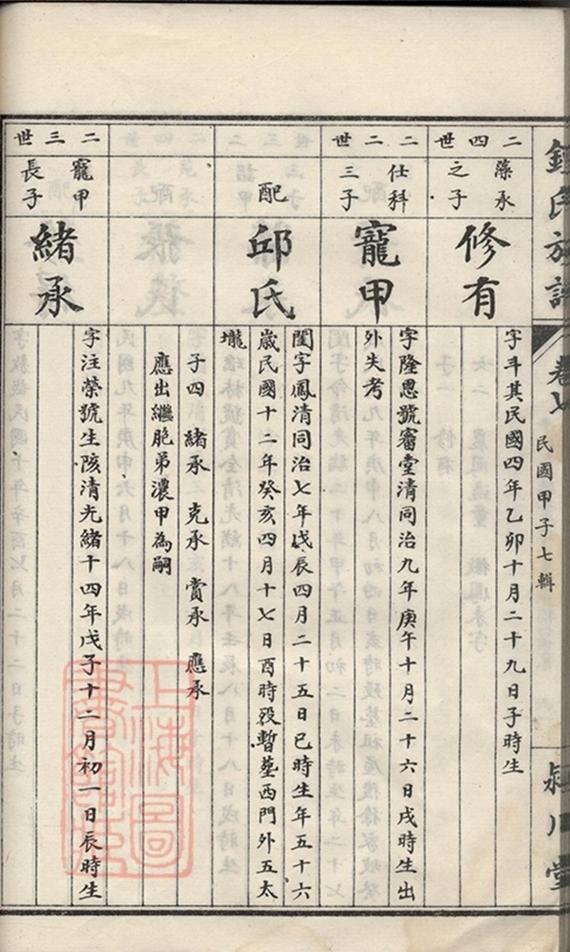 鍾氏族譜
卷七
民國甲子七輯
潁川堂
二四世
藻承
之子
修有
字斗其民國四年乙卯十月二十九日子時生
二二世
仕科
三子
寵甲
字隆恩號審堂清同治九年庚午十月二十六日戌時生出
外失考
配
邱氏
閨字鳳清同治七年戊辰四月二十五日巳時生年五十六
歲民國十二年癸亥四月十七日酉時歿暫塟西門外五太
壠
子四 緒承 克承 賞承 應承
應出繼胞弟濃甲為嗣
二三世
寵甲
長子
緒承
字注榮號生陔清光緒十四年戊子十二月初一日辰時生